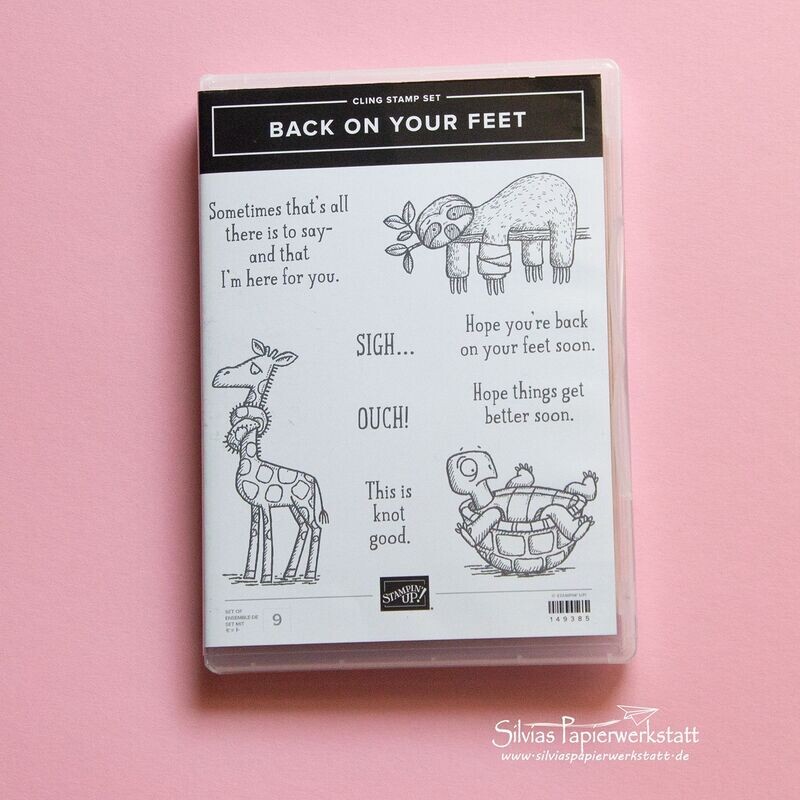 CLING STAMP SET
BACK ON YOUR FEET
Sometimes that's all
there is to say–
and that
I'm here for you.
SIGH...
Hope you're back
on your feet soon.
OUCH!
Hope things get
better soon.
This is
knot
good.
STAMPIN' UP!
SET OF
ENSEMBLE DE
SET MIT
セット
9
© STAMPIN' UP!
149385
Silvias Papierwerkstatt
www.silviaspapierwerkstatt.de